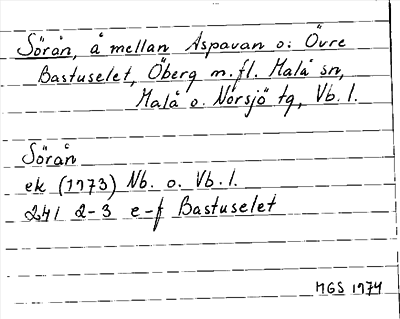 Sörån, å mellan Aspavan o. Övre
Bastuselet, Öberg m.fl. Malå sn,
Malå o. Norsjö tg, Vb. l.
Sörån
ek (1973) Nb. o. Vb. l.
24I 2-3 e-f Bastuselet
MGS 1974